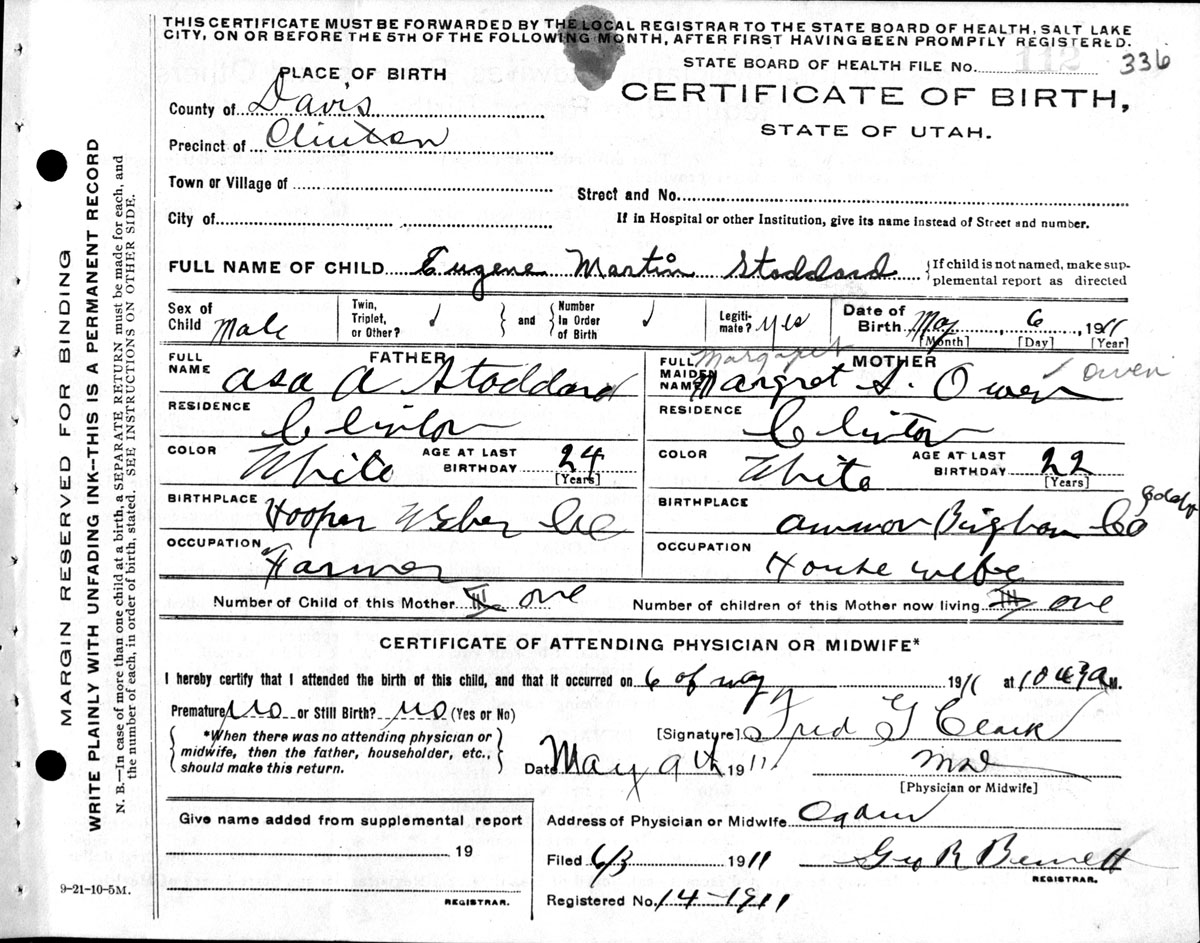 THIS CERTIFICATE MUST BE FORWARDED BY THE LOCAL REGISTRAR TO THE STATE BOARD OF HEALTH, SALT LAKE
CITY, ON OR BEFORE THE 5TH OF THE FOLLOWING MONTH, AFTER FIRST HAVING BEEN PROMPTLY REGISTERED.
STATE BOARD OF HEALTH FILE No. 112 336
CERTIFICATE OF BIRTH,
STATE OF UTAH.
PLACE OF BIRTH
County of Davis
Precinct of Clinton
Town or Village of
Street and No.
City of
If in Hospital or other Institution, give its name instead of Street and number.
FULL NAME OF CHILD Eugene Martin Stoddard {If child is not named, make sup-
plemental report as directed
Sex of Child Male
Twin, Triplet, or Other? ✓ } and { Number In Order of Birth ✓
Legiti-mate? yes
Date of Birth May 6, 1911
[Month] [Day] [Year]
FATHER
FULL NAME Asa A Stoddard
RESIDENCE Clinton
COLOR White AGE AT LAST BIRTHDAY 24
[Years]
BIRTHPLACE Hooper Weber Co
OCCUPATION of Farmer
MOTHER
Margaret
FULL MAIDEN NAME Margret S. Owen Owen
RESIDENCE Clinton
COLOR White AGE AT LAST BIRTHDAY 22
[Years]
BIRTHPLACE Ammon Bingham Co Idaho
OCCUPATION House wife
Number of Child of this Mother one Number of children of this Mother now living one
CERTIFICATE OF ATTENDING PHYSICIAN OR MIDWIFE*
I hereby certify that I attended the birth of this child, and that it occurred on 6 of May 1911 at 10 43 A M.
Premature No or Still Birth? No (Yes or No)
*When there was no attending physician or
midwife, then the father, householder, etc.,
should make this return.
[Signature] Fred G Clark
Date May 9th 1911 MD
[Physician or Midwife]
Give name added from supplemental report
19
REGISTRAR.
Address of Physician or Midwife Ogden
Filed 6/3 1911 Geo R Bennett
REGISTRAR.
Registered No. 14-1911
9-21-10-5M.
MARGIN RESERVED FOR BINDING
WRITE PLAINLY WITH UNFADING INK--THIS IS A PERMANENT RECORD
N. B.—In case of more than one child at a birth, a SEPARATE RETURN must be made for each, and
the number of each, in order of birth, stated. SEE INSTRUCTIONS ON OTHER SIDE.